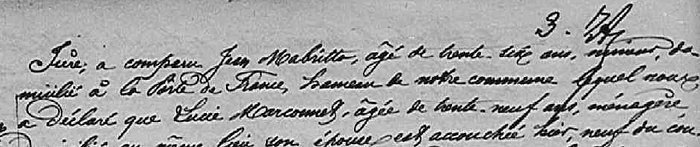 Isère, a comparu Jean Mabritto, âgé de trente six ans, mineur, do
micilié à la Porte de France, hameau de notre commune lequel nous
a déclaré que Lucie Marconnet, âgée de trente-neuf ans, ménagère
au même lieu, son épouse est accouchée hier, neuf du cou